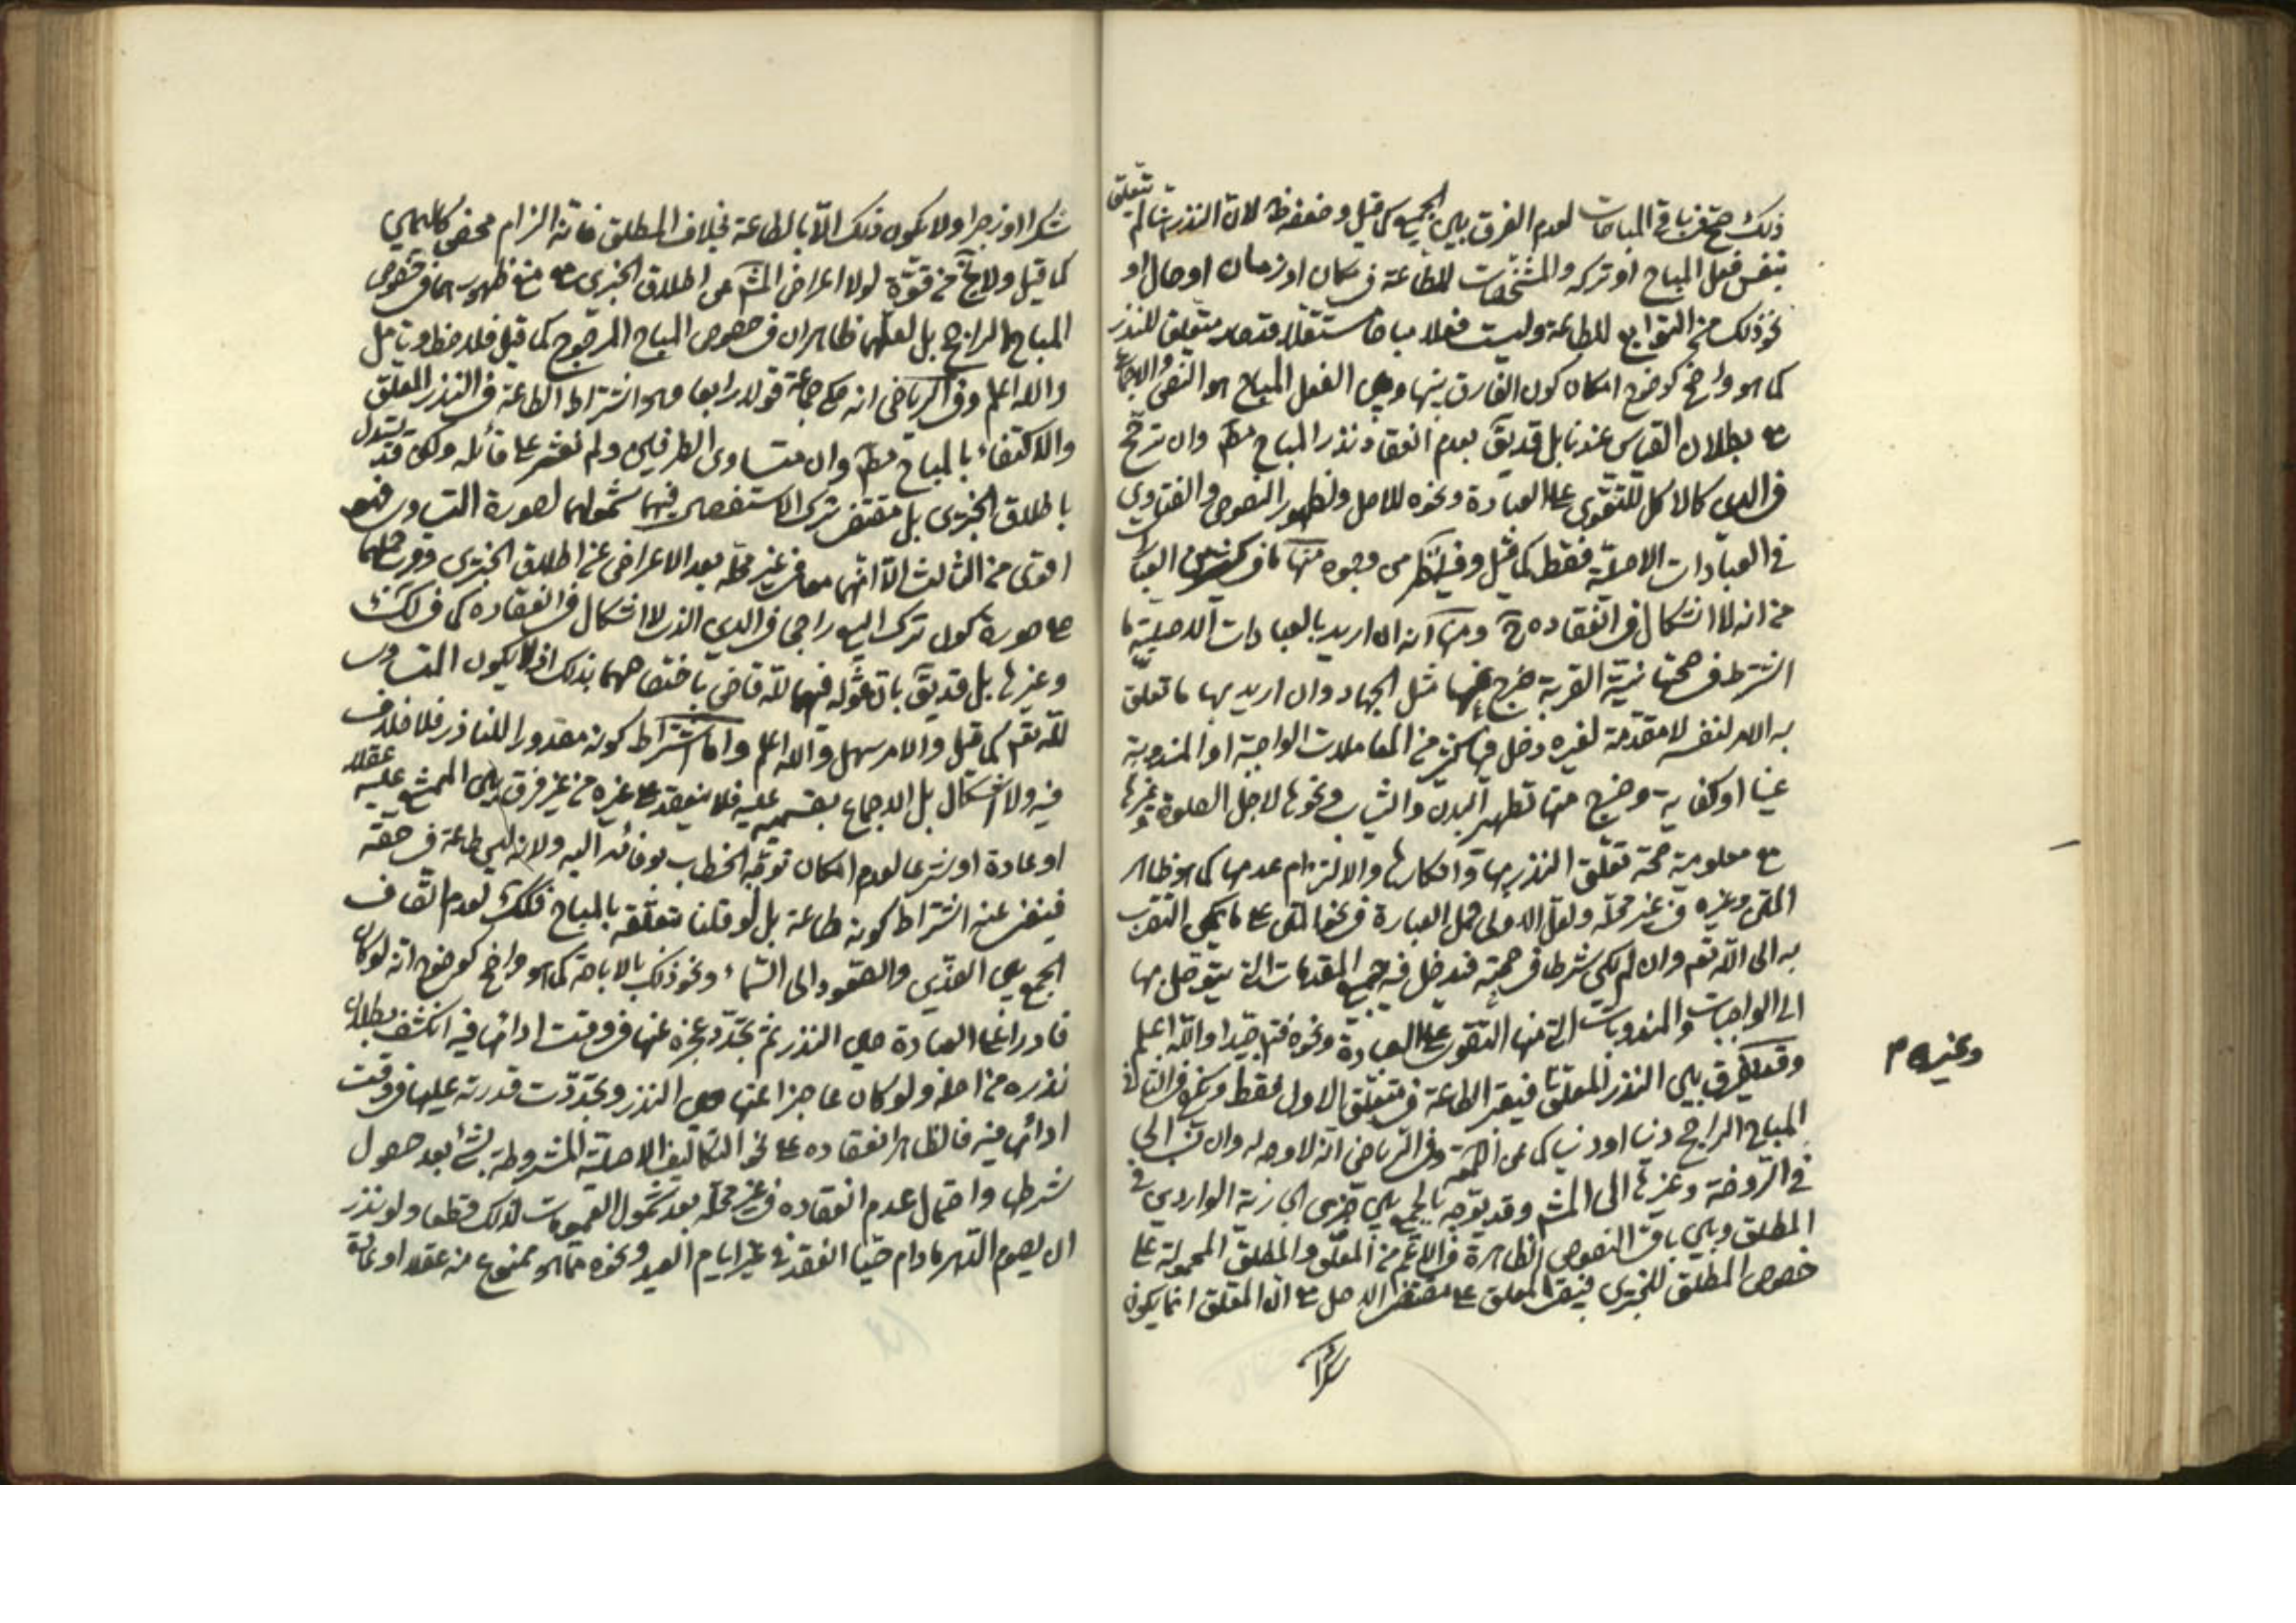 ذلك صح في باقي المباحات لعدم الفرق بين الجميع كما قيل وضعفه ظ لان النذر انما لم يتعلق
بنفس فعل المباح او تركه والمشخصات للطاعة في مكان او زمان او حال او
نحو ذلك من التوابع للطاعة وليست فعلا مباحا مستقلا قصد متعلق للنذر
كما هو واضح كوضوح امكان كون الفارق بينها وبين الفعل المباح هو النص والاجماع
مع بطلان القياس عندنا بل قد يق بعدم انعقاد نذر المباح مط وان ترجح
في الدين كالاكل للتقوى على العبادة ونحوه للاصل ولظهور النصوص والفتاوى
في العبادات الاصلية فقط كما قيل وفيه نظر من وجوه منها ما في كثير من العبارات
من انه لا اشكال في انعقاده ح ومنها انه ان اريد بالعبادات الاصلية ما
اشترط في صحتها نية القربة خرج عنها مثل الجهاد وان اريد بها ما تعلق
به الامر لنفسه لا مقدمة لغيره دخل فيها كثير من المعاملات الواجبة او المندوبة
عينا او كفاية وخرج منها تطهير البدن والثياب ونحوها لاجل الصلوة وغيرها
مع معلومية صحة تعلق النذر بها وانكارها والالتزام بعدمها كما هو ظاهر
المتن وغيره في غير محله ولعل الاولى حمل العبارة في نحو المتن على ما يمكن التقرب
به الى الله تعم وان لم يكن شرطا في صحته فيدخل فيه جميع المقدمات التي يتوصل بها
الى الواجبات والمندوبات التي منها التقوى على العبادة ونحوه فتدبر جيدا والله اعلم
وقد يفرق بين النذر المعلق فيعتبر الطاعة في متعلق الاول فقط وينعقد في الثاني
المباح الراجح دينا او دنيا كما عن اللمعة وفي الرياض انه لا وجه له وان نسب الى
في الروضة وغيرها الى المشهور وقد يوجه بالجمع بين خبرى ابي الواردين في
المطلق وبين باقي النصوص الظاهرة في الاعم من المعلق والمطلق المحمولة على
خصوص المطلق للخبرين فيبقى المعلق على مقتضى الاصل مع ان المعلق انما يكون
شكرا
وغيره م
شكرا او زجرا ولا يكون ذلك الا بالطاعة بخلاف المطلق فانه الزام محض كاليمين
كما قيل ولا يخ من قوة لولا اعراض المشهور عن اطلاق الخبرين مع منع ظهورهما في خصوص
المباح الراجح بل لعلهما ظاهران في خصوص المباح المرجوح كما قيل فلاحظ وتامل
والله اعلم وفي الرياض انه حكى جماعة قولا رابعا وهو اشتراط الطاعة في النذر المعلق
والاكتفاء بالمباح مط وان متساوى الطرفين ولم نعثر على قائله ولكن قد يستدل
باطلاق الخبرين بل مقتضى ترك الاستفصال فيهما شمولهما لصورة التساوى فهو
اقوى من الثالث الا انهما معا في غير محله بعد الاعراض عن اطلاق الخبرين وقرب حملهما
على صورة كون ترك البيع راجحا في الدين الذى لا اشكال في انعقاده كما في لك
وغيرها بل قد يق بان قوله فيهما لله قاض باختصاصهما بذلك اذ لا يكون المتساوى
لله تعم كما قيل والامر سهل والله اعلم واما اشتراط كونه مقدورا للناذر فلا خلاف
فيه ولا اشكال بل الاجماع بقسميه عليه فلا ينعقد على غيره من غير فرق بين الممتنع عليه عقلا
او عادة او شرعا لعدم امكان توجه الخطاب بوفائه اليه ولانه ليس طاعة في حقه
فيغنى عنه اشتراط كونه طاعة بل لو قلنا بتعلقه بالمباح فكك لعدم اتصاف
الجمع بين الضدين والصعود الى السماء ونحو ذلك بالاباحة كما هو واضح كوضوح انه لو كان
قادرا على العبادة حين النذر ثم تجدد عجزه عنها في وقت ادائها فيه انكشف بطلان
نذره من اصله ولو كان عاجزا عنها حين النذر وتجددت قدرته عليها في وقت
ادائها فيه فالظاهر انعقاده على نحو التكاليف الاصلية المشروطة بشئ بعد حصول
شرطها واحتمال عدم انعقاده في غير محله بعد شمول العمومات لذلك قطعا ولو نذر
ان يصوم الدهر مادام حيا انعقد في غير ايام العيد ونحوه مما هو ممنوع منه عقلا او عادة